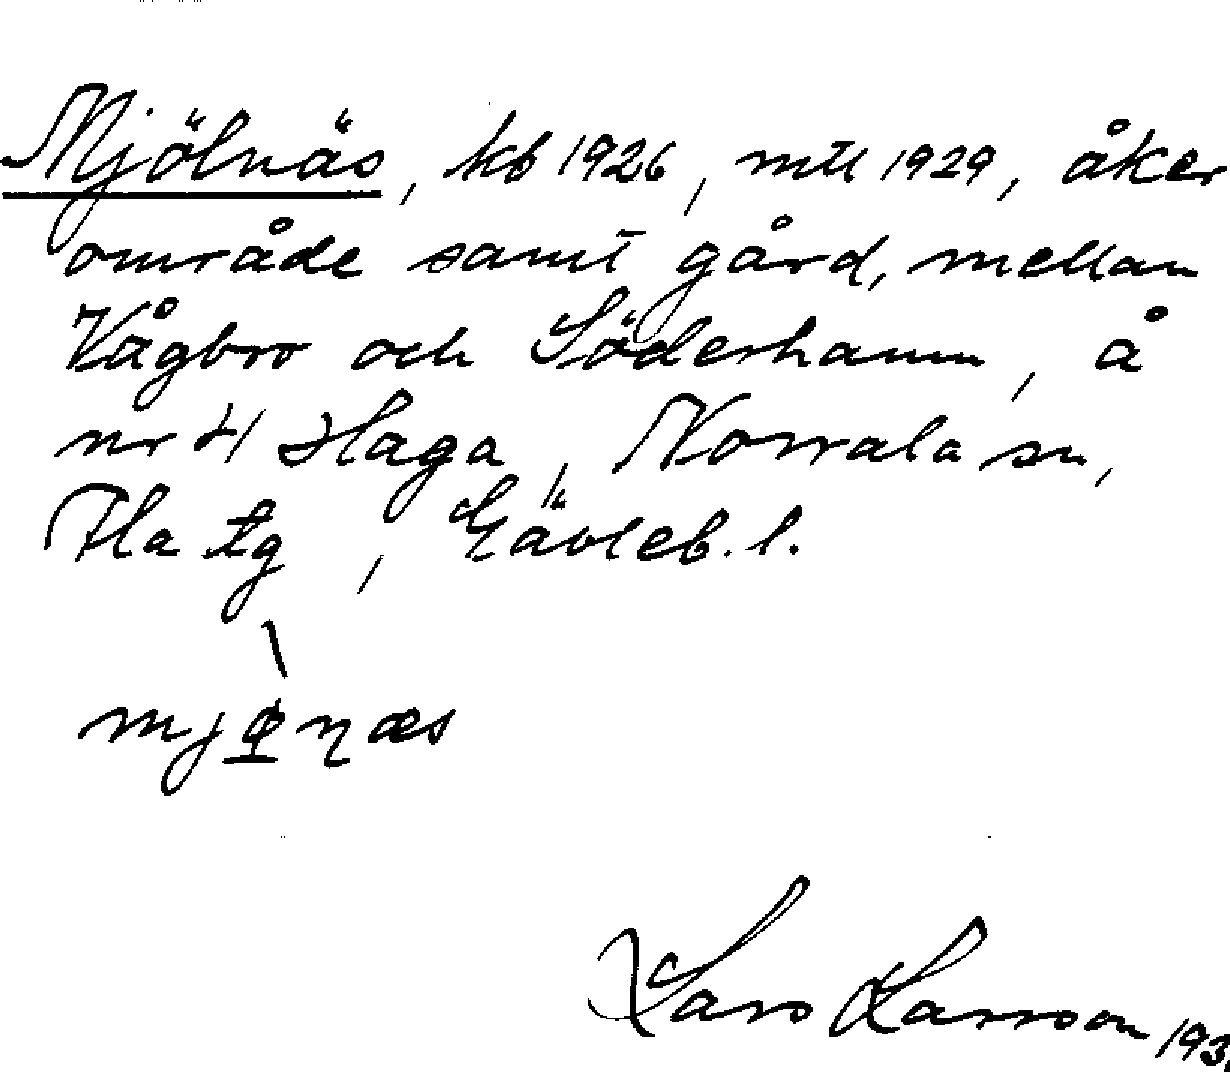 Mjölnäs, kb 1926, mtl 1929, åker
område samt gård, mellan
Vågbro och Söderhamn, å
nr 4 Haga, Norrala sn,
Hla tg, Gävleb. l.
Lars Larsson